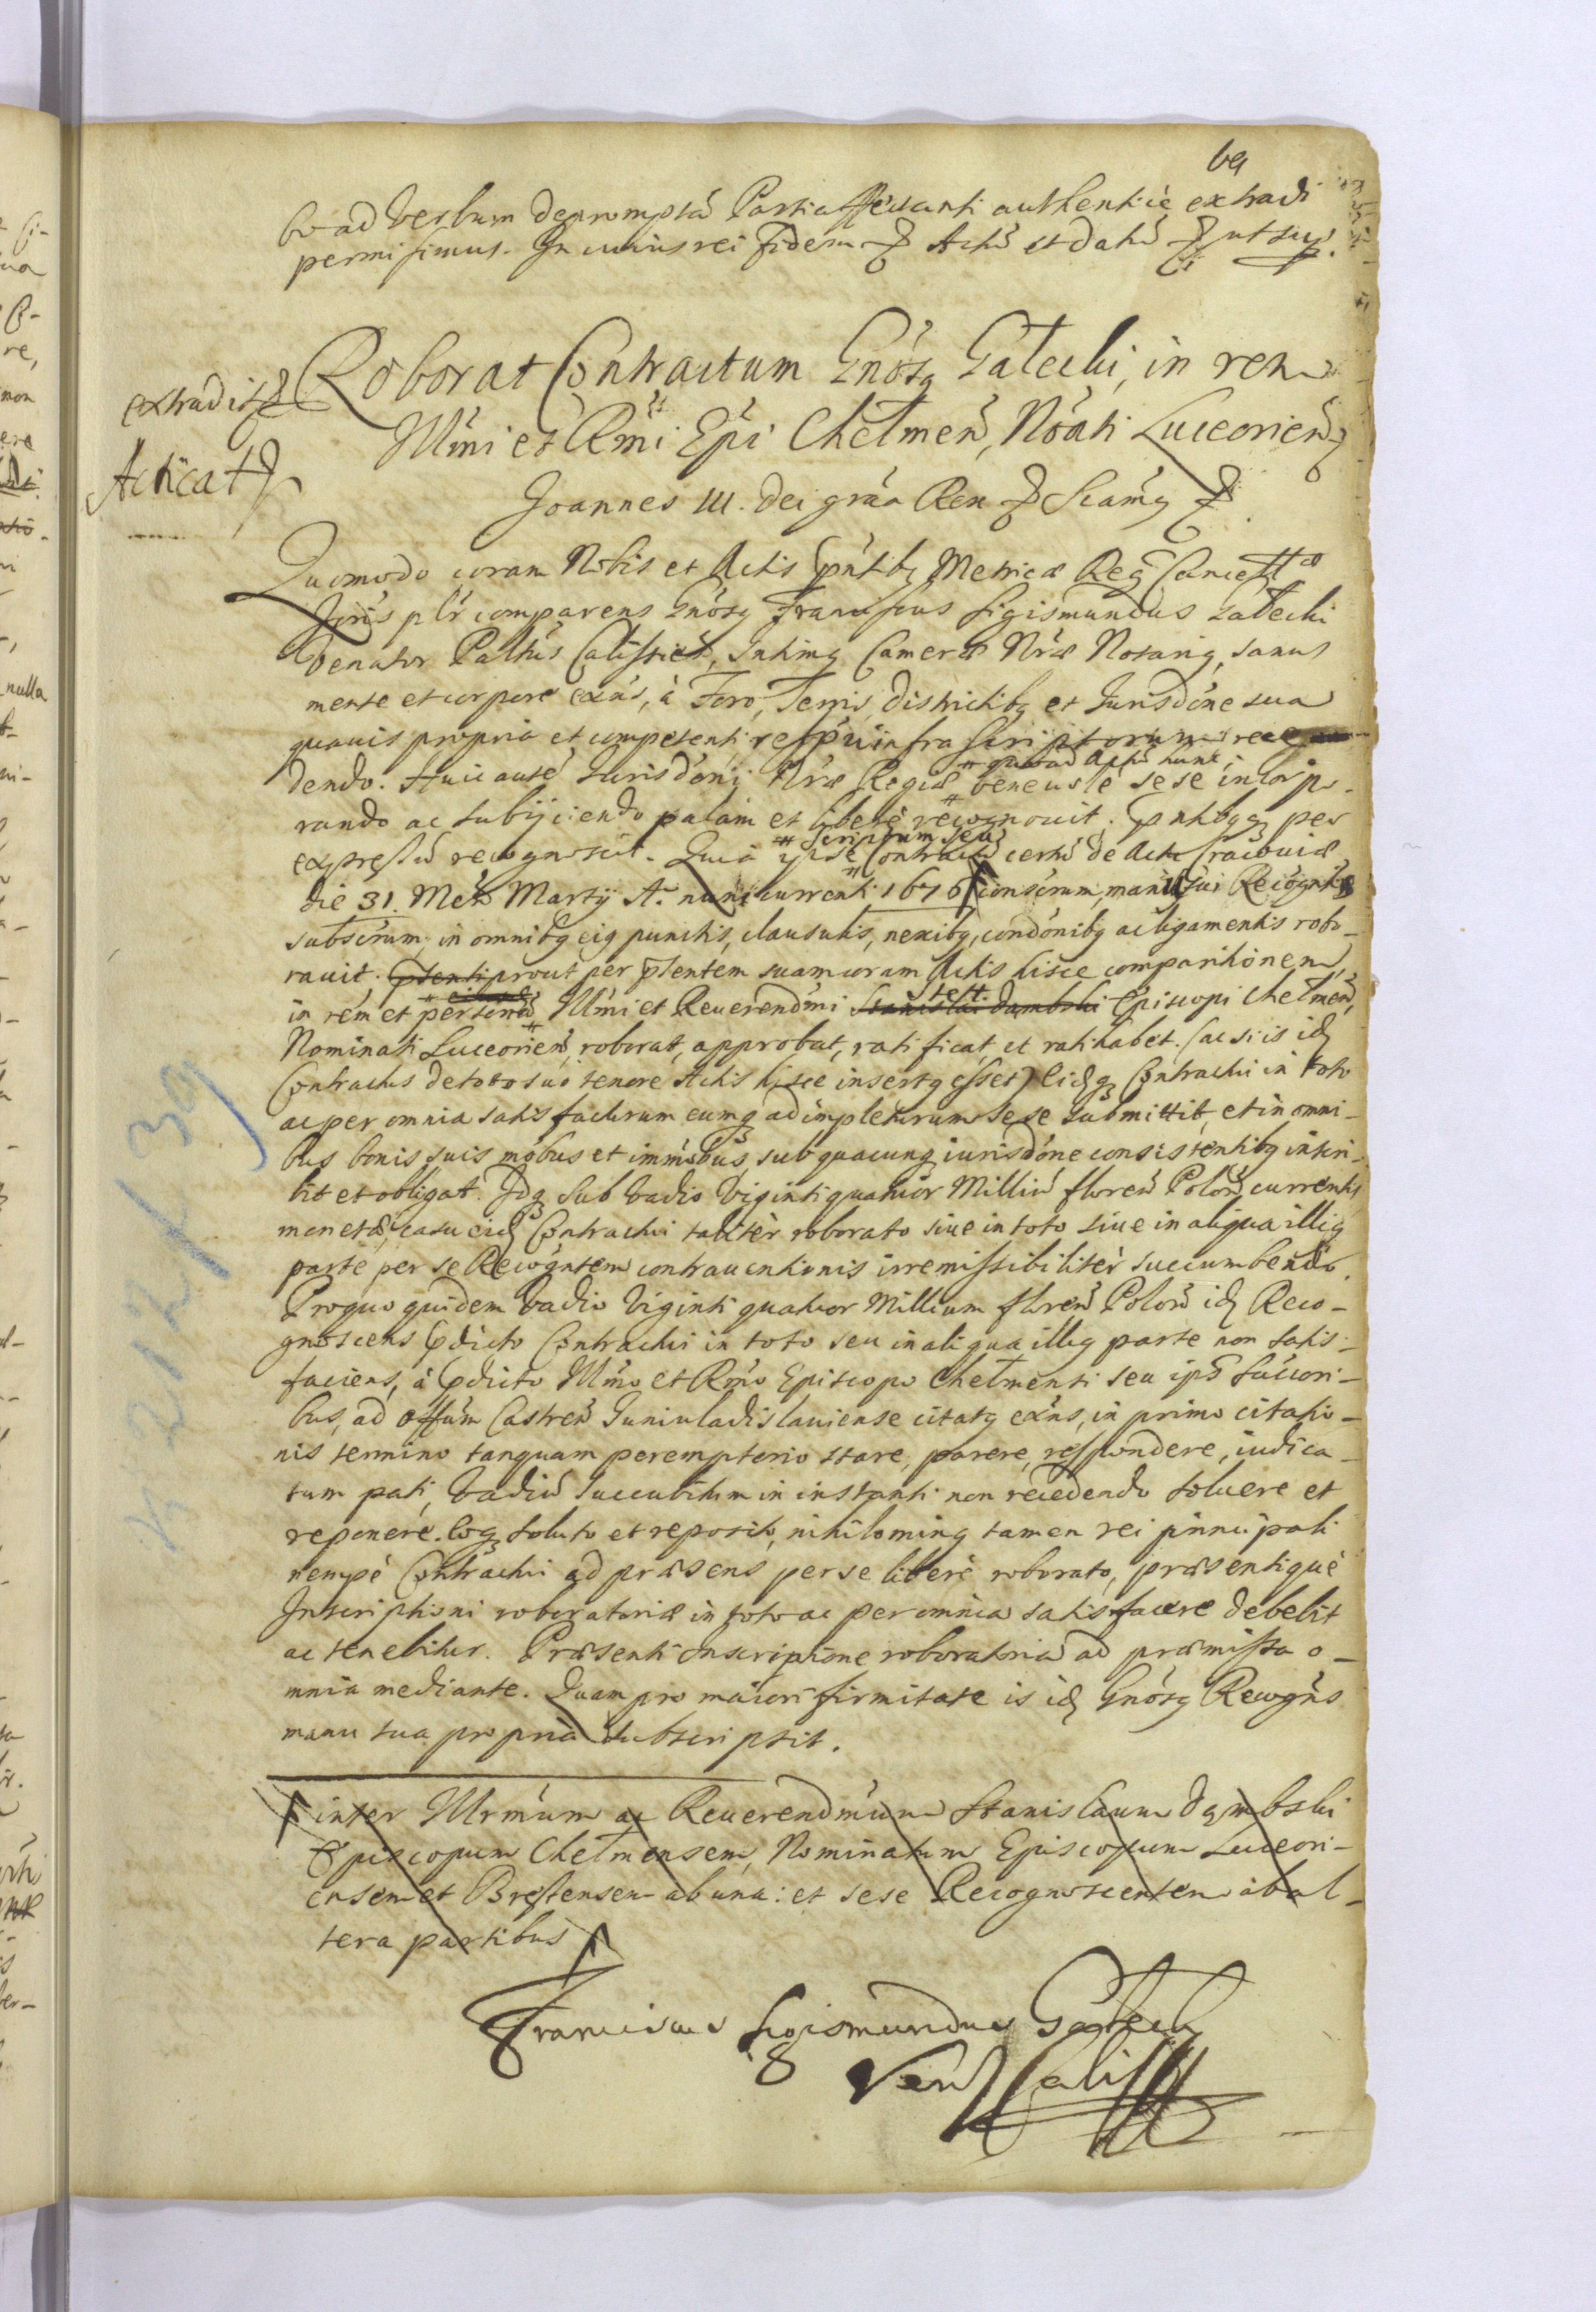 69
bo ad verbum depromptã Parti affectanti authenticè extradi
permisimus. In cuius rei fidem Actũ et datũ ut sup.
extradit
Acticat
Roborat Contractum Gnósq Gałecki, in rem
Illmi et Rmi Epi Chełmeñ, Nóati Luceorieñ
Joannes III. Dei gráa Rex Scámq
Quomodo coram Nobis et Actis pñtibq Metricæ Reg Cancellæ
Jpñs plr comparens Gnósq Franciscus Sigismundus Gałecki
Venator Paltús Calissieñ, Intimq Cameræ Nræ Notariq, sanus
mente et corpore exñs, à Foro, Terris, districtibq et Jurisdóne sua
quavis propria et competenti, respũ infra scriptorum rece
dendo. Huic autẽ Jurisdóni Nræ Regiæ # quoad Actũ hunc # beneuolè sese incorpo-
rando ac subijciendo palàm et liberè recognouit. Pñtibqq per
expressũ recognoscit. Quia ipse # Scriptum seu # Contractũ certũ de Actu Cracouiæ
die 31. Meñ Martij Aº nunc currenti 1676 conscrum, manu sui Recógntis
subscrum, in omnibq eiq punctis, clausulis, nexibq, condónibq ac ligamentis robo-
rauit. prout per pñtentem suam coram Actis hisce comparitionem,
in rem et personã Illmi et Reuerendmi Stanislai Dambski Episcopi Chełmeñ,
Nominati Luceorieñ, roborat, approbat, ratificat, et ratihabet. (ac si is idq
Contractus de toto suo tenore Actis hisce insertq esset) eidqq Contractui in toto
ac per omnia satisfacturum eumq adimpleturum sese submittit, et in omni-
bus bonis suis mobus et immobus, sub quacunq iurisdóne consistentibq inscri-
bit et obligat. Idq sub vadio Viginti quatuor Milliũ floreñ Poloñ currentis
monetæ, casu eidq Contractui taliter roborato siue in toto siue in aliqua illiq
parte per se Recógntem contrauentionis irremissibiliter succumbendo.
Pro quo quidem vadio Viginti quatuor Millium floreñ Poloñ idq Reco-
gnoscens pdicto Contractui in toto seu in aliqua illiq parte non satis-
faciens, à pdicto Illmo et Rmo Episcopo Chełmensi seu ipsq succori-
bus, ad Offum Castreñ Juniuladislauiense citatq exñs, in primo citatio-
nis termino tanquam peremptorio stare, parere, respondere, iudica-
tum pati, Vadiũ succubitum in instanti non recedendo soluere et
reponere. Eoq soluto et reposito, nihilominq tamen rei principali
nempè Contractui ad præsens per se liberè roborato, præsentiquè
Inscriptioni roboratoriæ in toto ac per omnia satisfacere debebit
ac tenebitur. Præsenti Inscriptione roboratoria ad præmissa o-
mnia mediante. Quam pro maiori firmitate is idq Gnósq Recogñs
manu sua propria subscripsit.
inter Illrmum ac Reuerendmum Stanislaum Dąmbski
Episcopum Chełmensem, Nominatum Episcopum Luceori-
ensem et Brestensem ab una: et sese Recognoscentem ab al-
tera partibus
Franciscus Sigismundus Gałecki
Ven Caliss